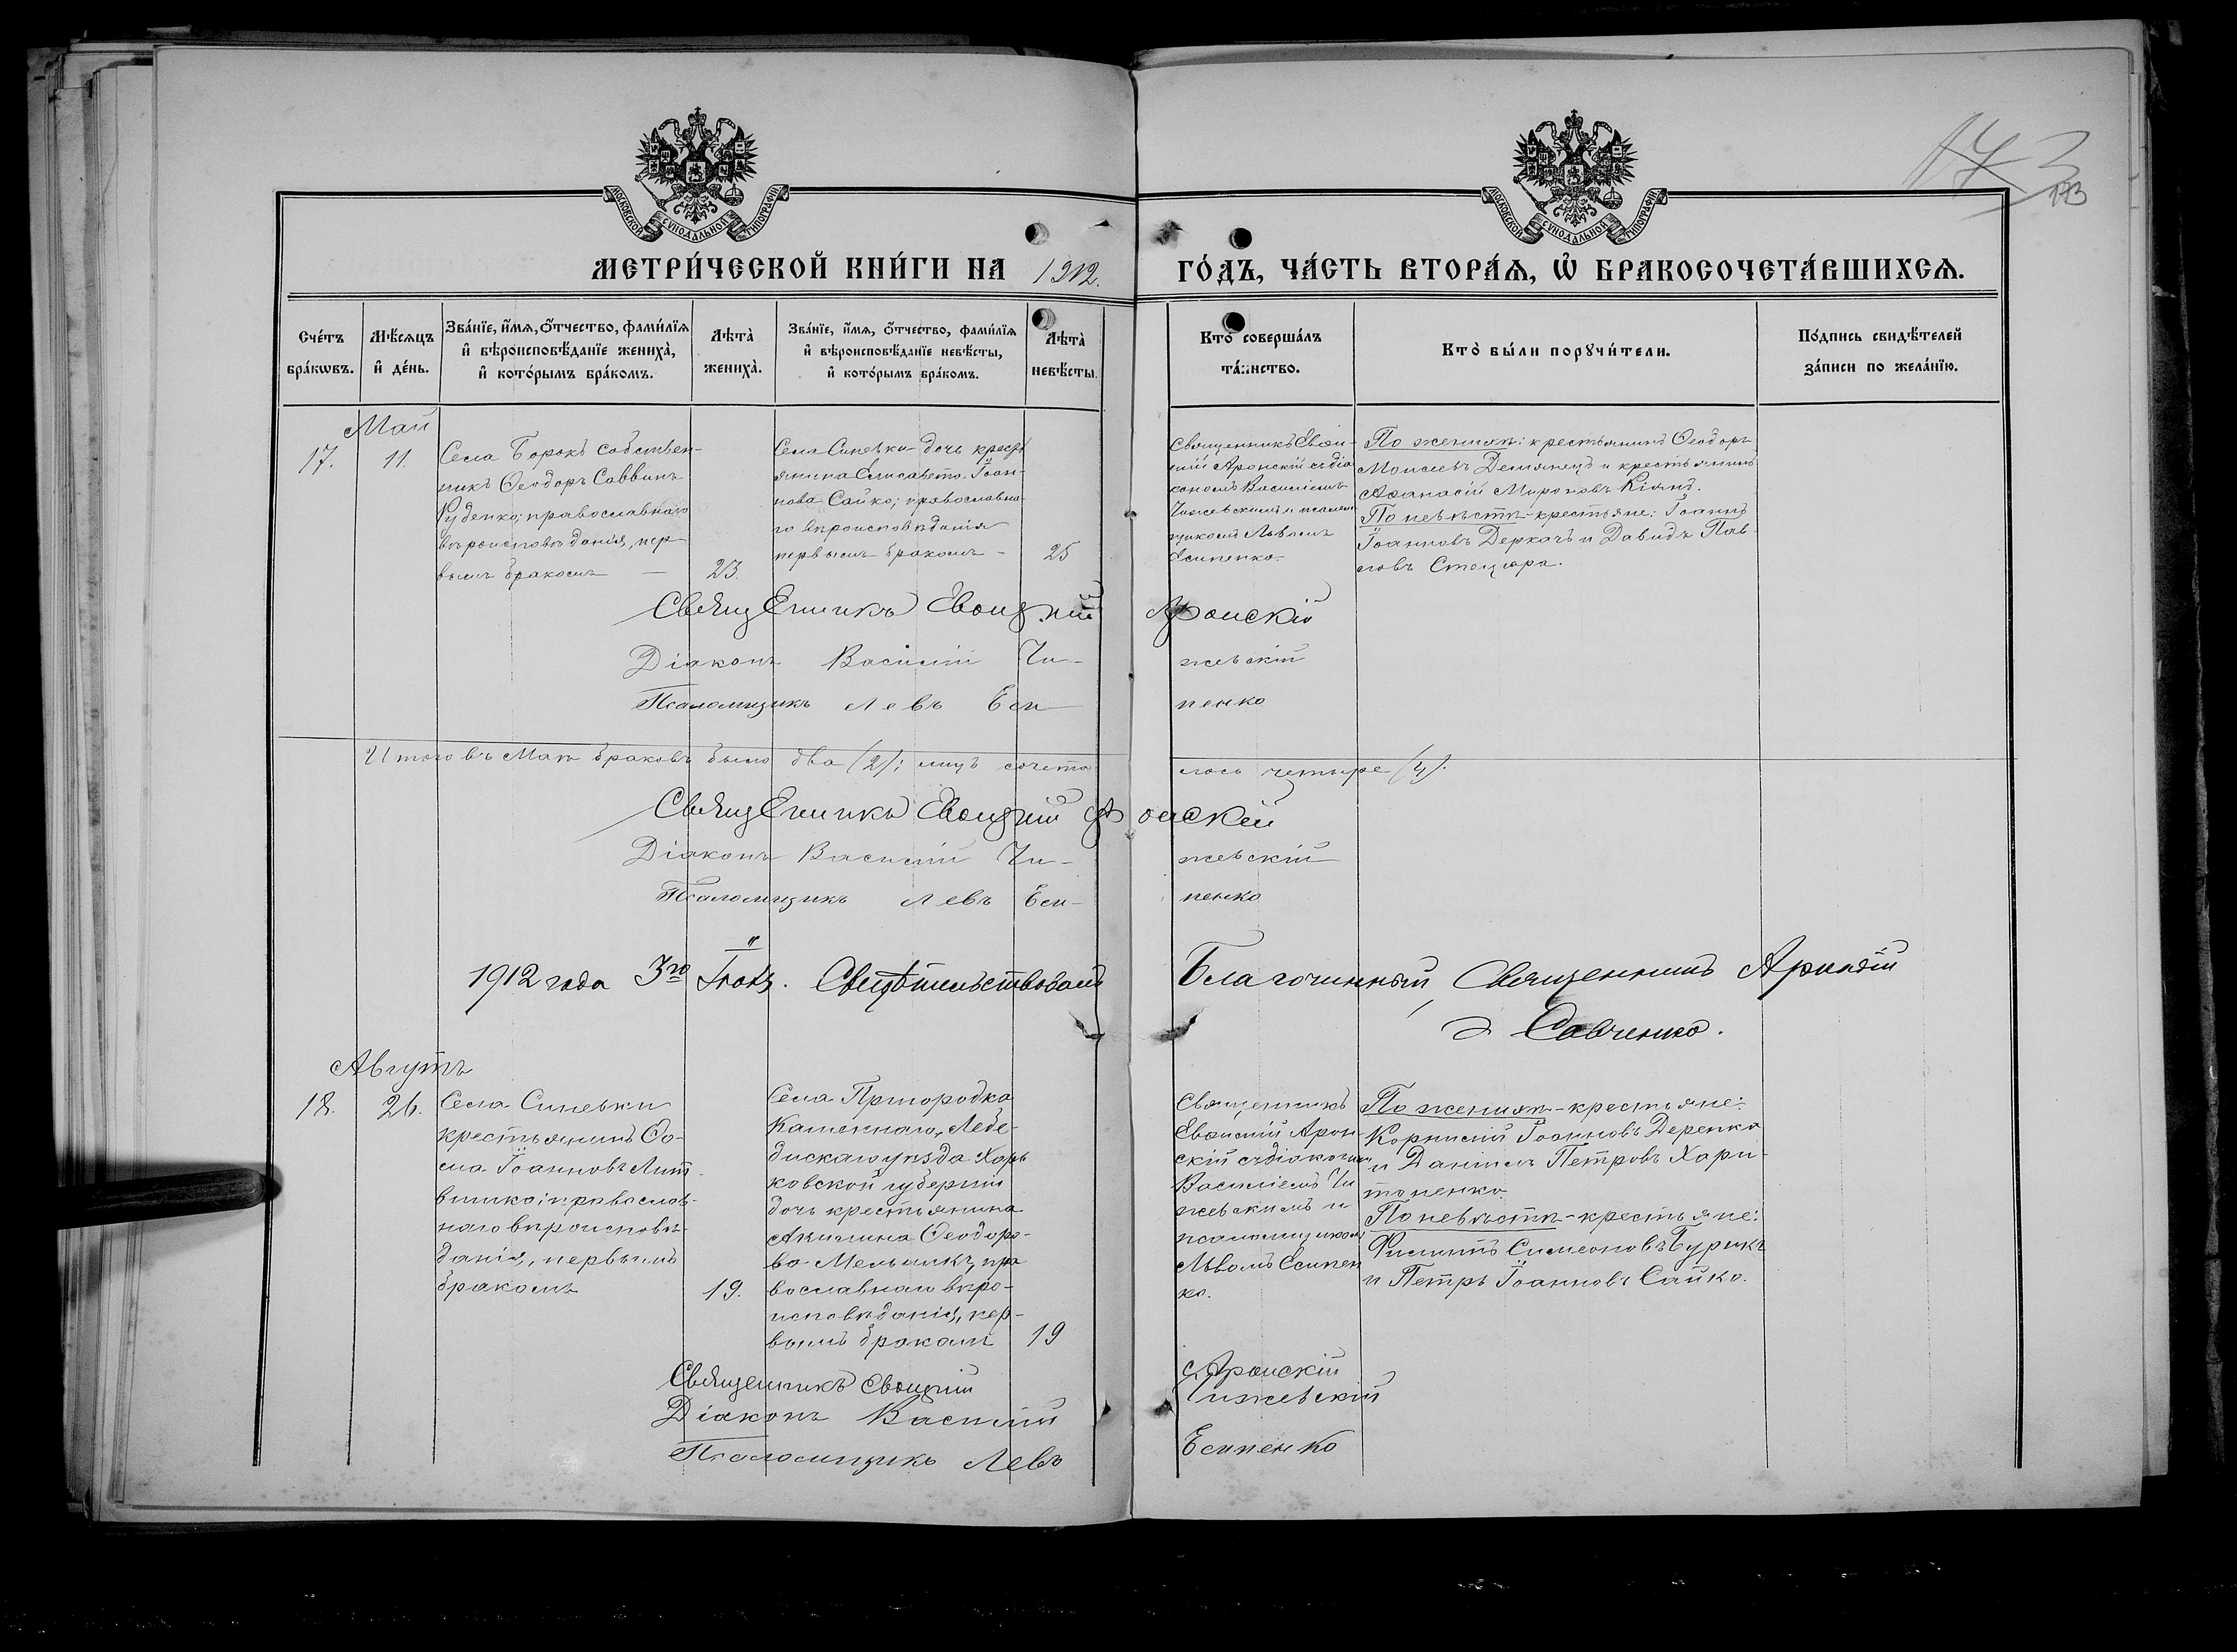 173
173
МОСКОВСКОЙ СѴНОДАЛЬНОЙ ТИПОГРАФІИ
МОСКОВСКОЙ СѴНОДАЛЬНОЙ ТИПОГРАФІИ
МЕТРИ́ЧЕСКОЙ КНИ́ГИ НА 1912.
ГО́ДЪ, ЧА́СТЬ ВТОРА́Я, Ѡ БРАКОСОЧЕТА́ВШИХСЯ.
Сче́тъ
бра́кѡвъ.
Мѣ́сяцъ
и҆ де́нь.
Зва́нїе, и҆́мя, ѻ҆́тчество, фами́лїя
и҆ вѣроисповѣ́данїе жениха̀,
и҆ кото́рымъ бра́комъ.
Лѣта̀
жениха̀.
Зва́нїе, и҆́мя, ѻ҆́тчество, фами́лїя
и҆ вѣроисповѣ́данїе невѣ́сты,
и҆ кото́рымъ бра́комъ.
Лѣта̀
невѣ́сты.
Кто̀ соверша́лъ
та́инство.
Кто̀ бы́ли порꙋчи́тели.
По́дпись свидѣ́телей
за́писи по жела́нїю.
Май
17.
11.
Села Борокъ собствен-
никъ Ѳеодоръ Саввинъ
Руденко; православнаго
вѣроисповѣданія, пер-
вымъ бракомъ —
23.
Села Синевки дочь кресть
янина Елисавета Іоан-
нова Сайко; православна-
го вѣроисповѣданія
первымъ бракомъ -
25
Священникъ Евѳи-
мій Аронскій съ діа
кономъ Василіемъ
Чижевскимъ и псалом
щикомъ Львомъ
Есипенко.
По женихѣ: крестьянинъ Ѳеодоръ
Моисеевъ Демянецъ и крестьянинъ
Аѳанасій Мироновъ Кіянъ.
По невѣстѣ - крестьяне: Іоаннъ
Іоанновъ Деркачъ и Давидъ Пав-
ловъ
Священникъ Евѳимій Аронскій
Діаконъ Василій Чи- жевскій
Псаломщикъ Левъ Еси- пенко
Итого въ Маѣ браковъ было два (2); лицъ сочета лось четыре (4).
Священникъ Евѳимій Аронскій
Діаконъ Василій Чи- жевскій
Псаломщикъ Левъ Еси- пенко
1912 года 3го Свидѣтельствовалъ Благочинный Священникъ Аркадій
Савченко.
Августъ
18.
26.
Села Синевки
крестьянинъ Ѳо-
ма Іоанновъ Лит-
виненко; православ-
наго вѣроисповѣ-
данія, первымъ
бракомъ
19.
Села Пригородка
Каменнаго, Лебе-
динскаго уѣзда Харь
ковской губерніи
дочь крестьянина
Акилина Ѳеодоро-
ва Мельникъ, пра
вославнаго вѣро-
исповѣданія, пер-
вымъ бракомъ
19
Священникъ
Евѳимій Арон-
скій съ діакономъ
Василіемъ Чи
жевскимъ и
псаломщикомъ
Львомъ Есипен
ко.
По женихѣ - крестьяне:
Корнилій Іоанновъ Деренко
и Даніилъ Петровъ Хари-
тоненко.
По невѣстѣ - крестьяне:
Филиппъ Симеоновъ Бурикъ
и Петръ Іоанновъ Сайко.
Священникъ Евѳимій Аронскій
Діаконъ Василій Чижевскій
Псаломщикъ Левъ Есипенко